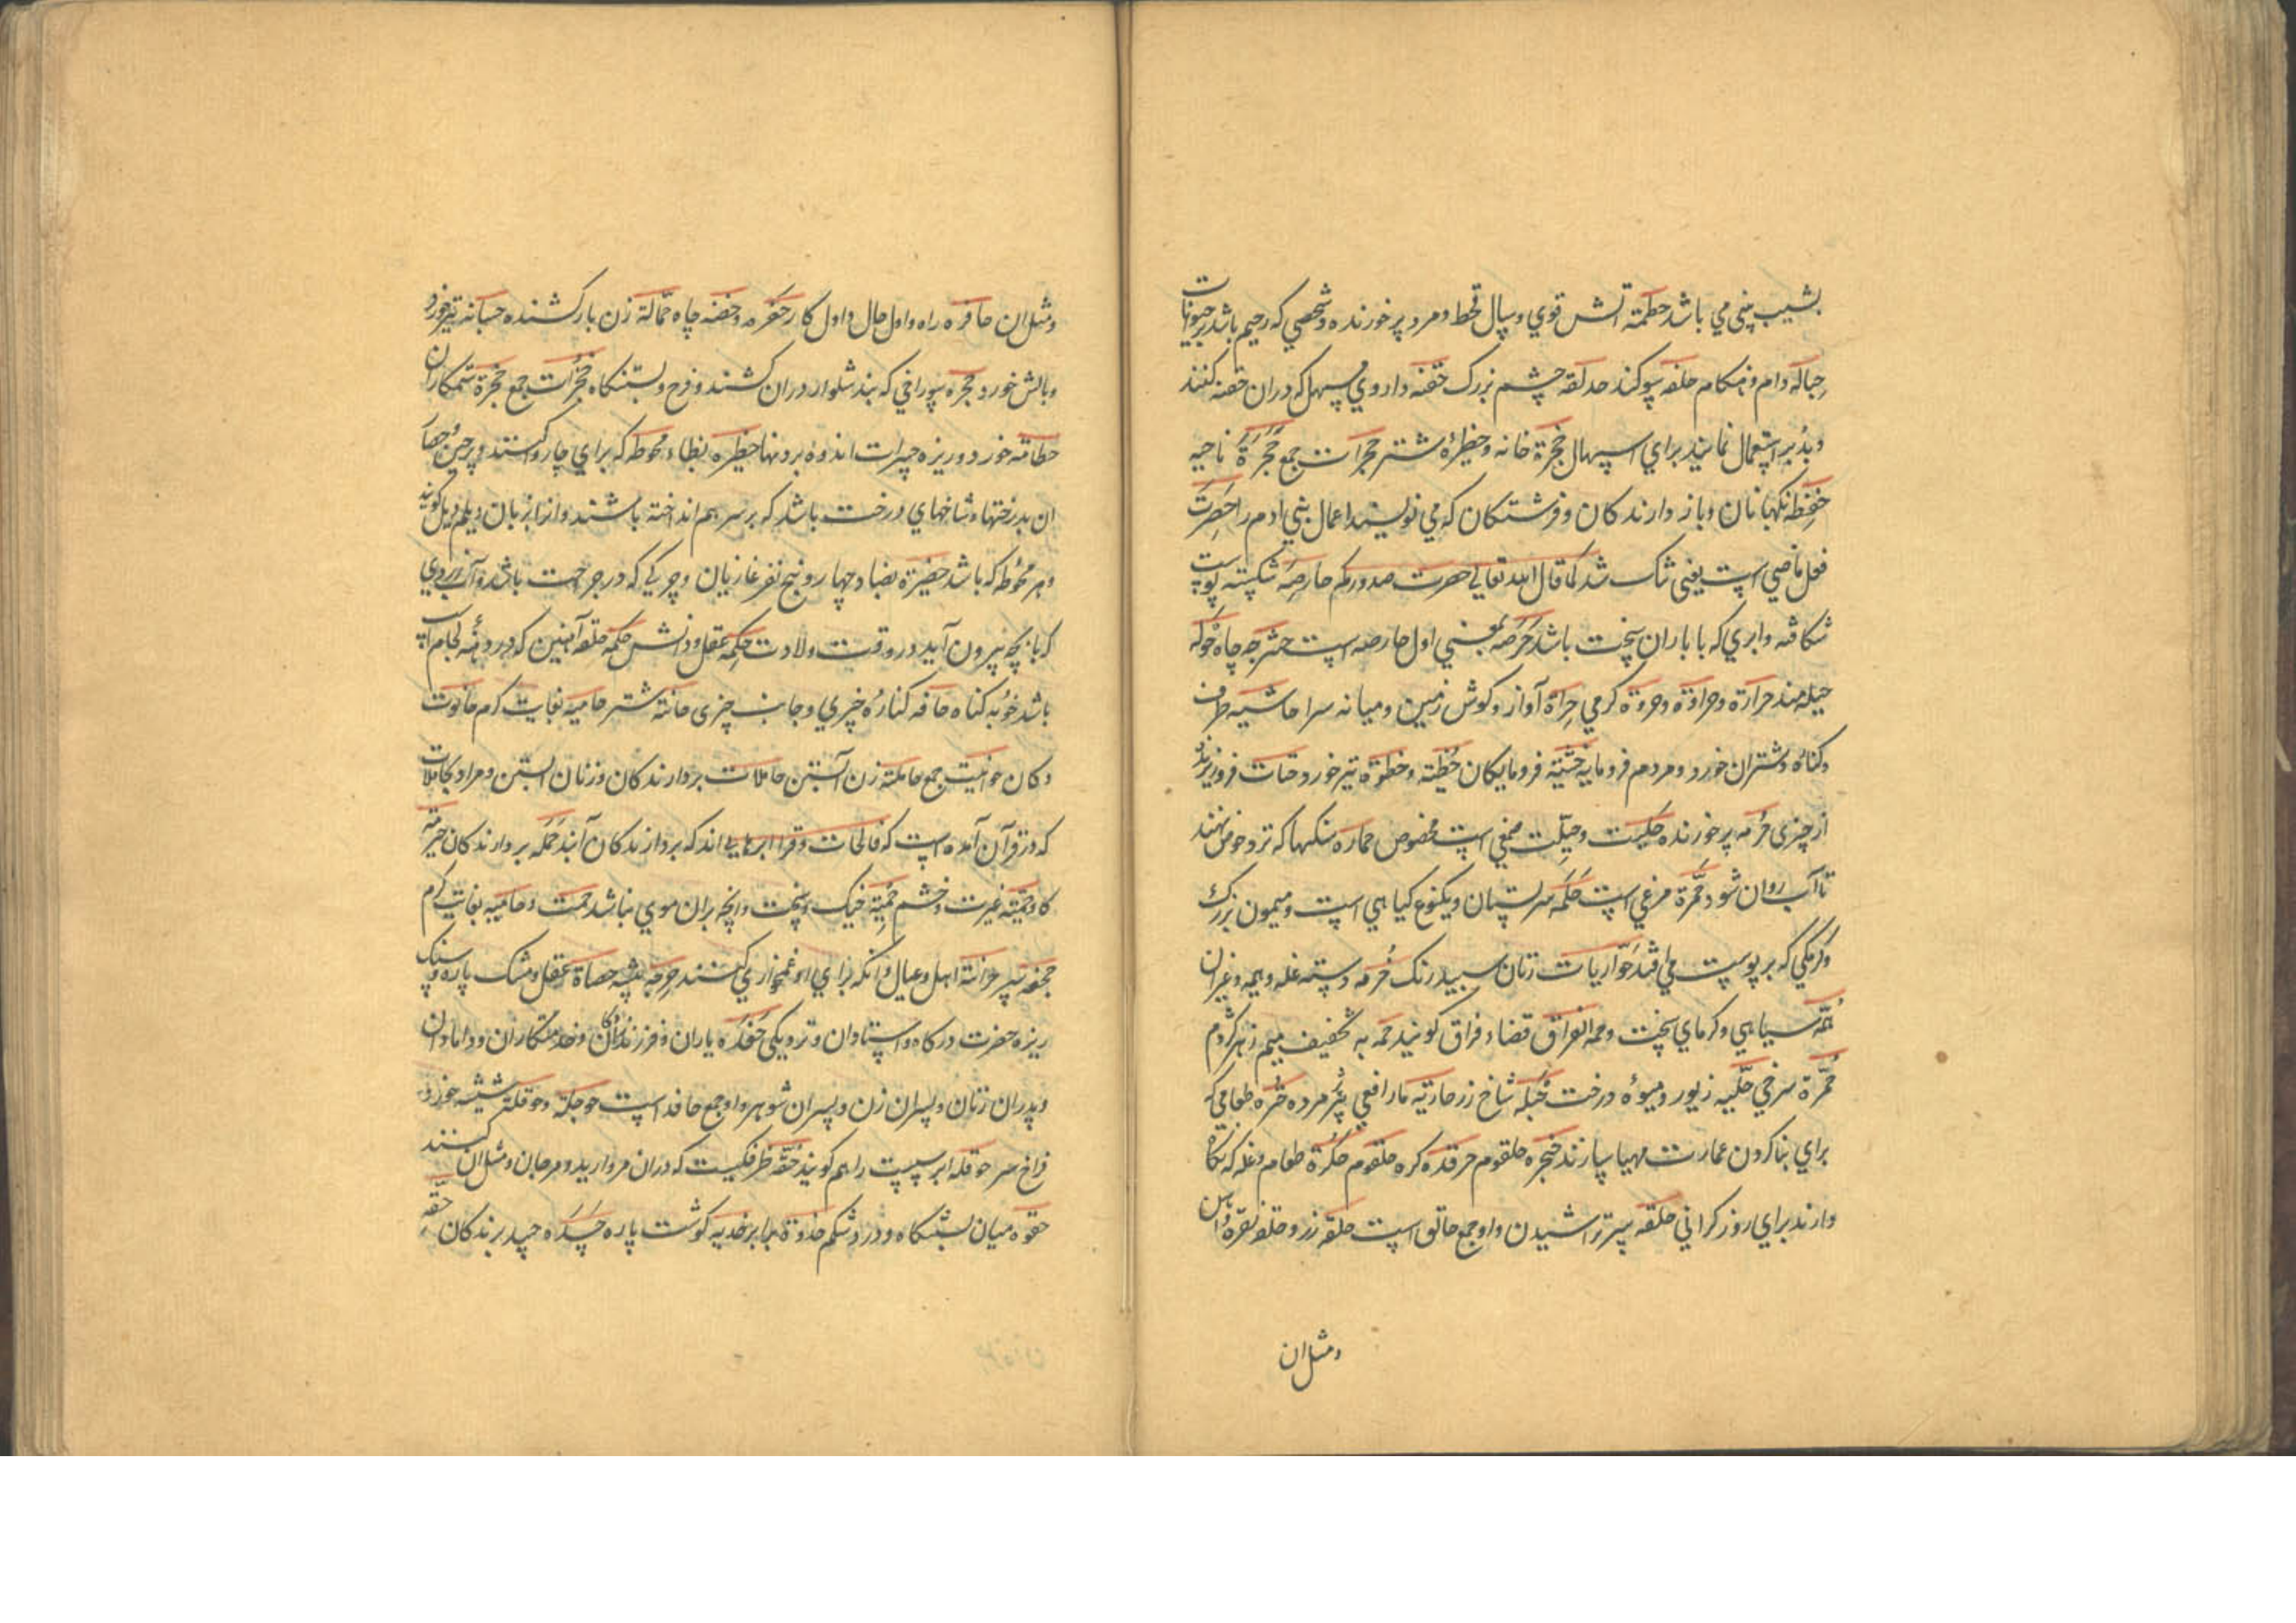 بشیب بینی می باشد حطمة آتش قوی و سال قحط و مرد پر خورنده و شخصی که رحیم باشد بر حیوانات
حِباله دام و هنکام حلفه سوکند حدلقه چشم بزرک حقنه داروی مسهل که دران حقنه کنند
و بدبر استعمال نمایند برای اسهال حجرة خانه و حظیرهٔ شتر حجرات جمع حُجْرَة ناحیه
حَفَظه نکهبانان و باز دارندکان و فرشتکان که می نویسند اعمال بنی ادم را حَصِرَت
فعل ماضی است یعنی تنک شد کما قال الله تعالی حصرت صدورهم حارصه شکسته پوست
شکافته و ابری که با باران سخت باشد حَرَصَه بمعنی اول حارصه است حشرجه چاه حُوَله
حیله مند حرارة و حراوة و حروة کرمی حِراة آواز و کوش زمین و میانه سرا حاشیه طرف
و کناره و شتران خورد و مردم فرومایه حَشیّه فرومایکان حُظیّه و حظوة تیر خورد حتات فروریزنده
از چیزی حُرمه پر خورنده حلیت و حلّیت صمغی است مخصوص حماره سنکها که کرد حوض نهند
تا آب روان شود حُمَّرة مرغی است حَلَمَه سرپستان و یکنوع کیاهی است و میمون بزرک
و کرمکی که بر پوست می افتد حَوّاریات زنان سپید رنک حُزمه دسته غله و هیمه و غیران
حُمَّه سیاهی و کرمای سخت و حمة الفراق قضاء فراق کویند حمه به تخفیف میم زهر کژدم
حُمرة سرخی حِلیه زیور و میوهٔ درخت حُبله شاخ زر حاریّه مار افعی پیر مرده حُتره طعامی که
برای بنا کردن عمارت مهیا سازند حنجره حلقوم حرقده کره حلقوم حُکرة طعام و غله که نکاه
دارند برای روز کرانی حلقه سر تراشیدن و او جمع حالق است حلقه زر و حلقه نقره و لباس
و مثل ان
و مثل ان حافره راه و اول حال و اول کار حَفره و حفنه چاه حمّالة زن بارکشنده حسبانه تیر خورد
و بالش خورد حُجزه سوراخی که بند شلوار دران کشند و فرج و بستنکاه حُجُزات جمع حجزة ستمکاران
حطامه خورد و ریزه چیرات اندوه بردنها حظیره بظاء محوطه که برای چاروا کنند و پرچین و حصار
ان بدرختها و شاخهای درخت باشد که بر سر هم انداخته باشند و انرا بزبان دیلم دیل کویند
و هر محوطه که باشد حضیرة بضاد چهار و پنج نفر غازیان و چرکی که در جراحت باشد و آبی و زردی
که با بچه بیرون آید در وقت ولادت حِکمه عقل و دانش حَکَمه حلقه آهنین که در دهنهٔ لجام اسپ
باشد حَوبه کناه حافه کنارهٔ چیزی و جانب چیزی حانّة شتر حامیه بغایت کرم حانوت
دکان حوانیت جمع حاملة زن آبستن حاملات بردارندکان و زنان آبستن و مراد بحاملات
که در قرآن آمده است که فالحاملات وقرا ابرهایی اند که بردارندکان آبند حَمَله بردارندکان حیرمه
کاو حمیّه غیرت و خشم حَمِیت خیک و سخت و انچه بران موی نباشد حمئت و حامیه بغایت کرم
حجوه سپر حُزانة اهل و عیال و آنکه برای او غمخواری کنند حرمه پیشه حصاة عقل و مشک پاره و سنک
ریزه حضرت درکاه و استادان و نزدیکی حَفَده یاران و فرزندزادکان و خدمتکاران و دامادان
و پدران زنان و پسران زن و پسران شوهر و او جمع حافد است حوجله و حوقله شیشه خورد
فراخ سر حوقله ابر سپست را هم کویند حُقّه ظرفیست که دران مروارید و مرجان و مثل ان کنند
حقوه میان بستنکاه و درد شکم حذوة برابر حذیه کوشت پاره حَسَده حسد برندکان حِقّه